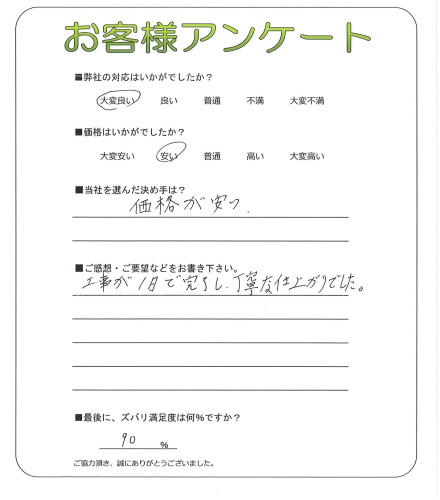 お客様アンケート
■弊社の対応はいかがでしたか？
大変良い 良い 普通 不満 大変不満
■価格はいかがでしたか？
大変安い 安い 普通 高い 大変高い
■当社を選んだ決め手は？
価格が安い.
■ご感想・ご要望などをお書き下さい。
工事が1日で完了し、丁寧な仕上がりでした。
■最後に、ズバリ満足度は何％ですか？
90 ％
ご協力頂き、誠にありがとうございました。